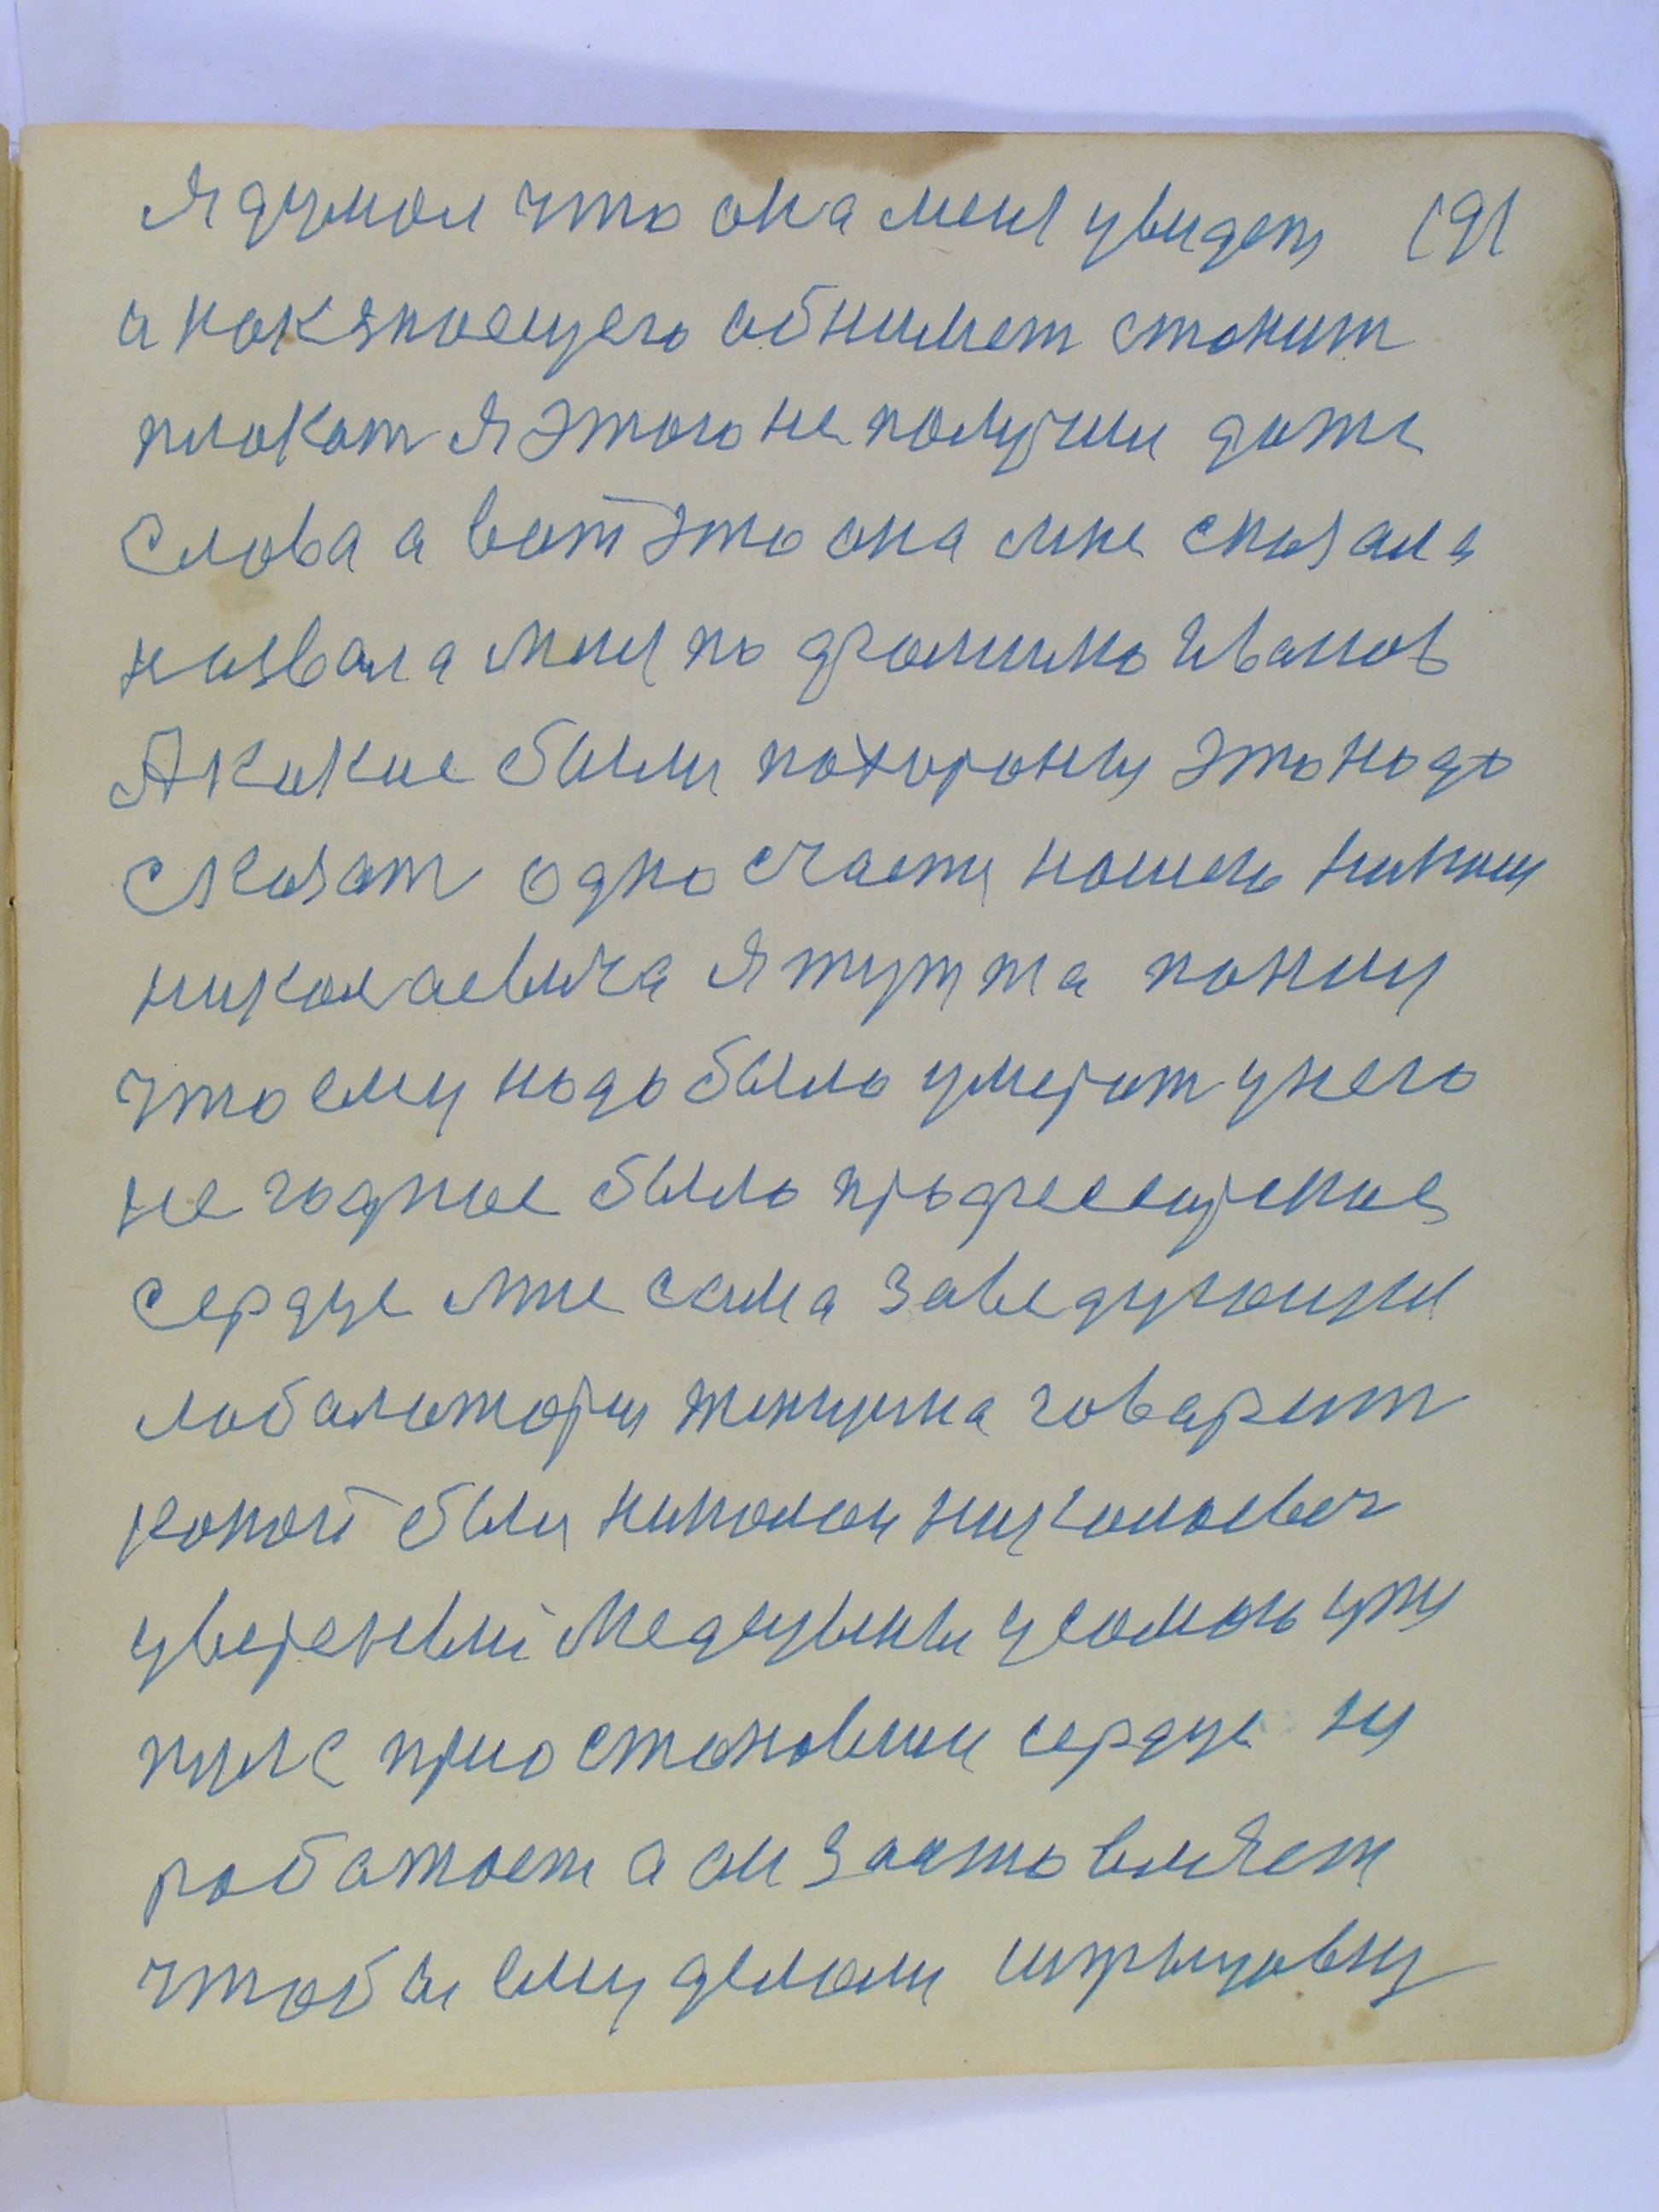 Я думал что она меня увидет 191
а как знаещего обнимет станит
плакат я этого не получил даже
слова а вот это она мне сказала
назвала меня по фамилио Иванов
А какие были похороны это надо
сказат одно счастя нашего
николаевича я тут та понил
что ему надо было умерат у него
не годное было
сердце мне сама заведующия
лабалатория женщина говарит
какой был николаи николаевеч
увереный медецыны усамого уже
пулс приостоновилси сердце ни
работает а он заставляет
чтобы ему делали